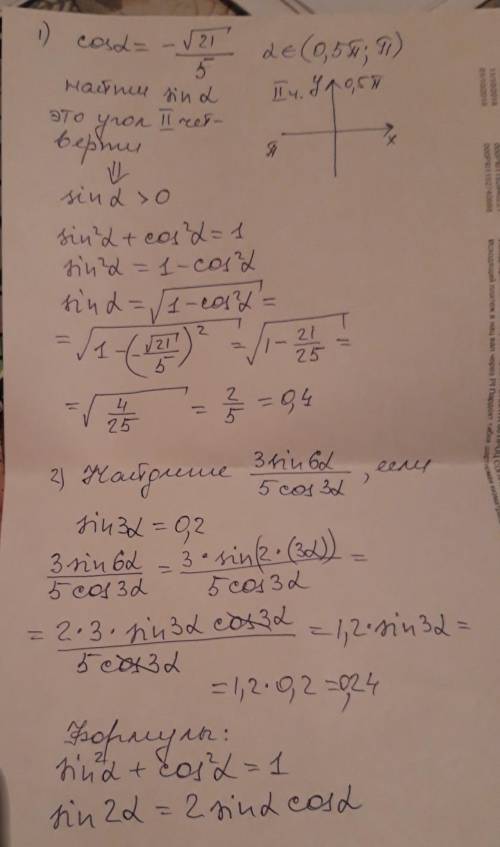 1) cosα = -√21/5 α∈(0,5π; π)
найти sin α
это угол II чет-
верти
II ч. y 0,5π
π x
⇓
sin α > 0
sin²α + cos²α = 1
sin²α = 1 - cos²α
sin α = √(1 - cos²α) =
= √(1 - (-√21/5)²) = √(1 - 21/25) =
= √(4/25) = 2/5 = 0,4
2) Найдите 3sin6α/5cos3α, если
sin3α = 0,2
3sin6α/5cos3α = 3·sin(2·(3α))/5cos3α =
= 2·3·sin3α cos3α/5cos3α = 1,2·sin3α =
= 1,2·0,2 = 0,24
Формулы:
sin²α + cos²α = 1
sin2α = 2sinα cosα